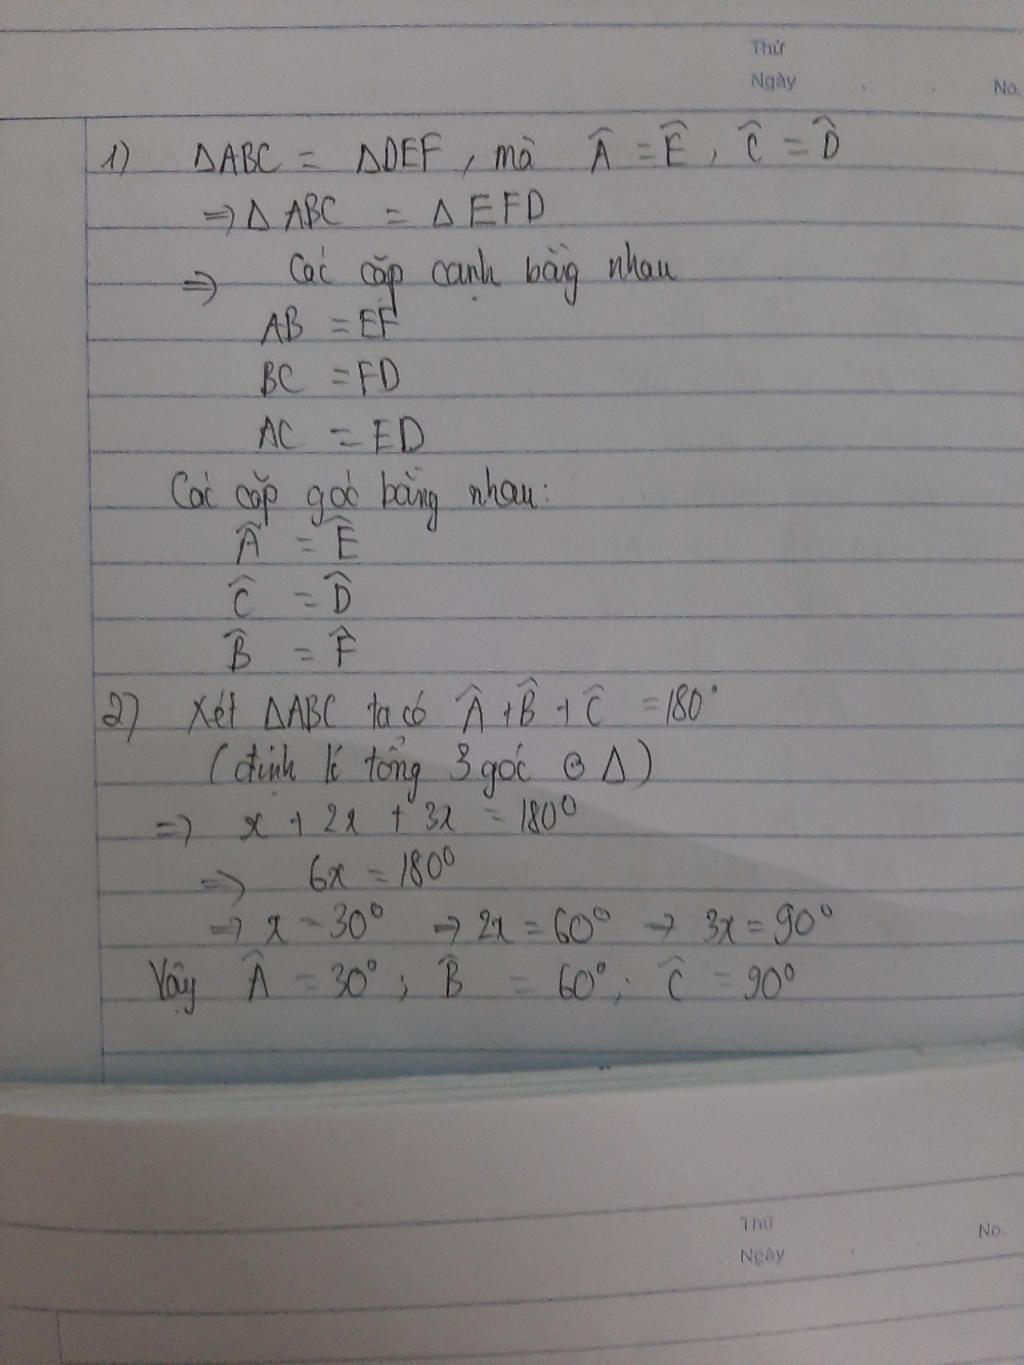 Thứ
Ngày
No.
1) ΔABC = ΔDEF, mà Â = Ê, Ĉ = D̂
⇒ Δ ABC = Δ EFD
⇒ Các cặp cạnh bằng nhau
AB = EF
BC = FD
AC = ED
Các cặp góc bằng nhau:
Â = Ê
Ĉ = D̂
B̂ = F̂
2) Xét ΔABC ta có Â + B̂ + Ĉ = 180°
(định lí tổng 3 góc Δ)
⇒ x + 2x + 3x = 180⁰
⇒ 6x = 180⁰
⇒ x = 30⁰ ⇒ 2x = 60⁰ ⇒ 3x = 90⁰
Vậy Â = 30°; B̂ = 60°; Ĉ = 90⁰
Thứ
Ngày
No.